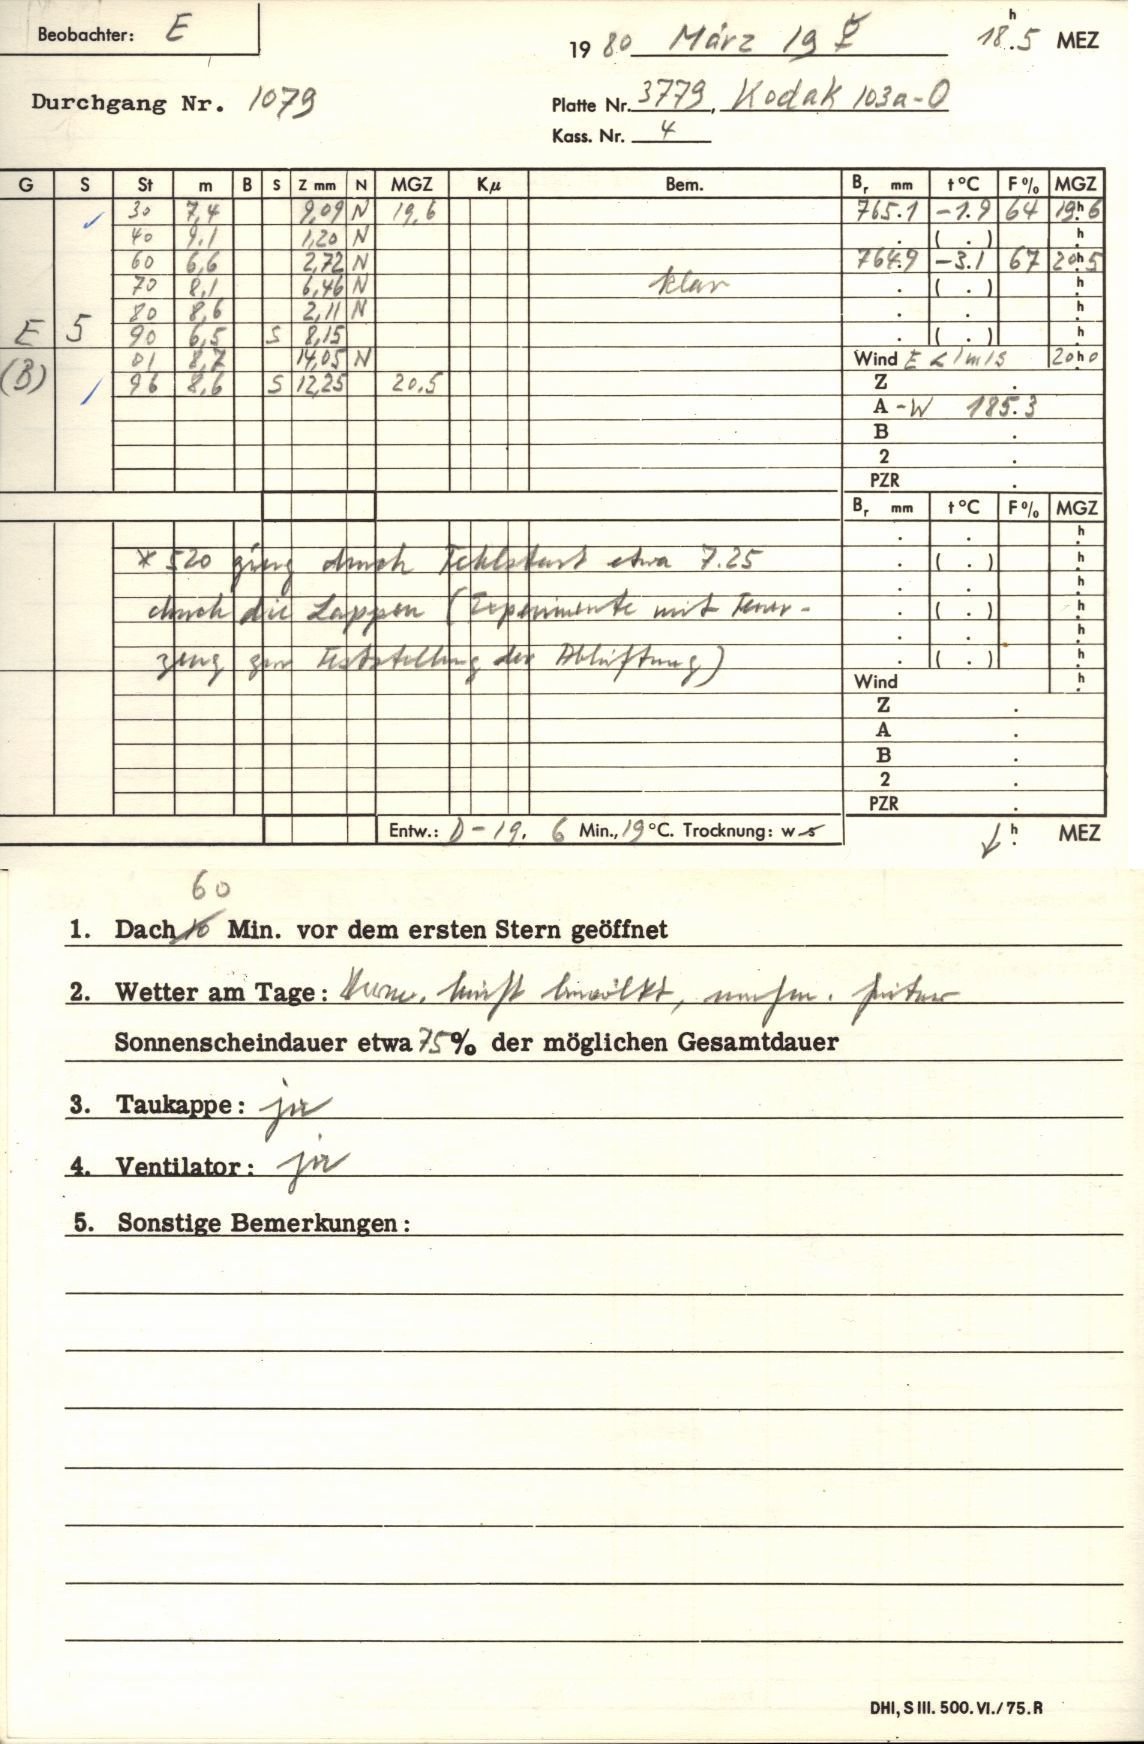 Beobachter: E
1980 März 19 18h.5 MEZ
Durchgang Nr. 1079
Platte Nr. 3779, Kodak 103a-O
Kass. Nr. 4
G S St m B S Z mm N MGZ Kμ Bem. Br mm t°C F% MGZ
30 7,4 9,09 N 19,6 765.1 -1.9 64 19h6
40 9.1 1,20 N . ( . ) h
60 6,6 2,72 N 764.9 -3.1 67 20h5
70 8,1 6,46 N klar . ( . ) h
80 8,6 2,11 N . . h
E 5 90 6,5 S 8,15 . ( . ) h
01 8,7 14,05 N Wind E < 1 m/s 20h0
(B) 96 8,6 S 12,25 20.5 Z .
A -W 185.3
B .
2 .
PZR .
Br mm t°C F% MGZ
. . h
* 520 ging durch Fehlstart etwa 7.25 . ( . ) h
. . h
durch die Lappen (Experimente mit Feuer- . ( . ) h
. . h
zeug zur Feststellung der Ablüftung) . ( . ) h
Wind h
Z .
A .
B .
2 .
PZR .
Entw.: D-19. 6 Min., 19 °C. Trocknung: w s h MEZ
60
1. Dach 10 Min. vor dem ersten Stern geöffnet
2. Wetter am Tage: Vorm. leicht bewölkt, nachm. heiter
Sonnenscheindauer etwa 75% der möglichen Gesamtdauer
3. Taukappe: ja
4. Ventilator: ja
5. Sonstige Bemerkungen:
DHI, S III. 500. VI./75. R